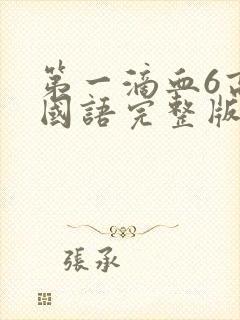 第一滴血6高
國語完整版
張承